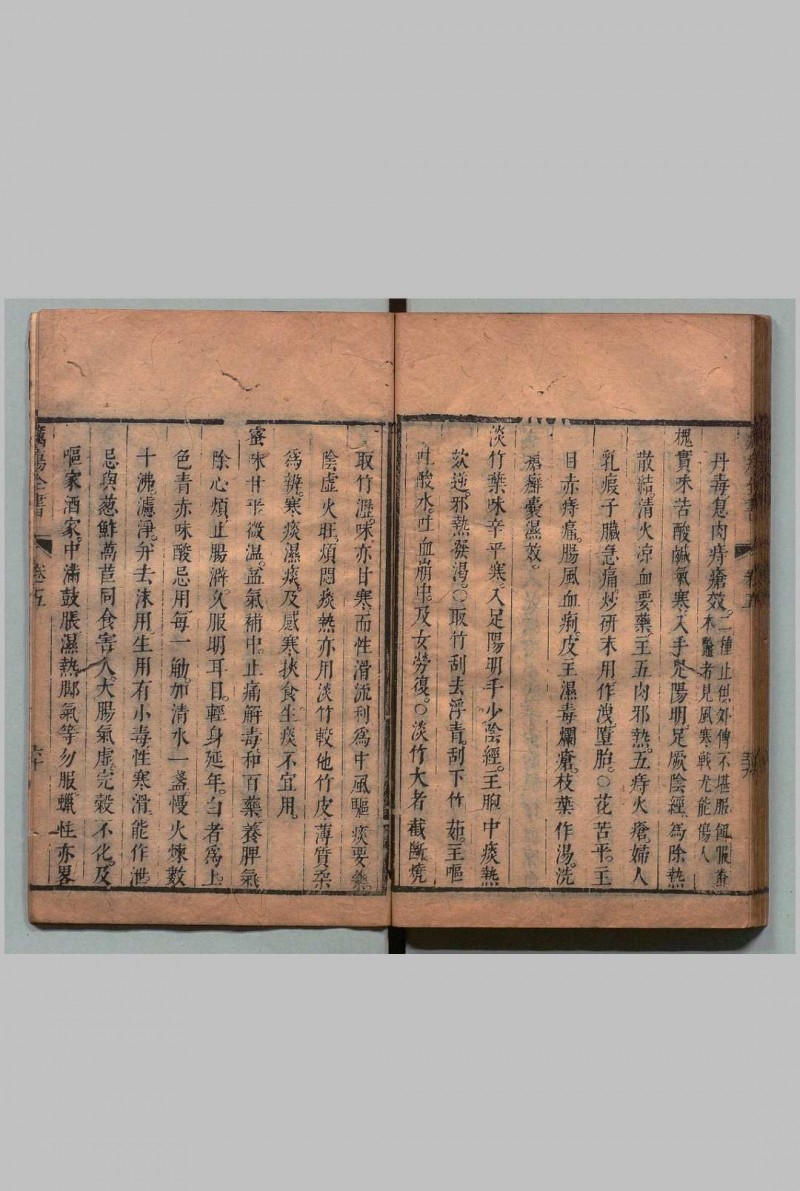 丹毒息肉痔瘡效二種止但
木
者見風寒戰尤能傷人
槐實味苦酸鹹氣寒入手足陽明足厥陰經為除熱
散結清火凉血要藥主五内邪熱五痔火瘡婦人
乳瘕子臟急痛炒研末用作湯墮胎○花苦平主
目赤痔痛腸風血痢皮主濕毒爛瘡枝葉作湯洗
癬囊濕效
淡竹葉味辛平寒入足陽明手少陰經主胸中痰熱
欬逆邪熱發渴○取竹刮去浮青刮下竹茹主嘔
吐酸水吐血崩中及女勞復○淡竹大者截斷燒
取竹瀝味亦甘寒而性滑流利為中風驅痰要藥
陰虛火旺煩悶痰熱亦用淡竹較他竹皮薄質柔
為辨寒痰濕痰及感寒挾食生痰不宜用
蜜味甘平微温益氣補中止痛解毒和百藥養脾氣
除心煩止腸澼久服明耳目輕身延年白者為上
色青赤味酸忌用每一觔加清水一盞慢火煉數
十沸濾淨弁去沫用生用有小毒性寒滑能作泄
忌與葱鮓萵苣同食害人大腸氣虛完穀不化及
嘔家酒家中滿鼓脹濕熱脚氣等勿服蠟性亦畧
瘍全書
卷五
六十